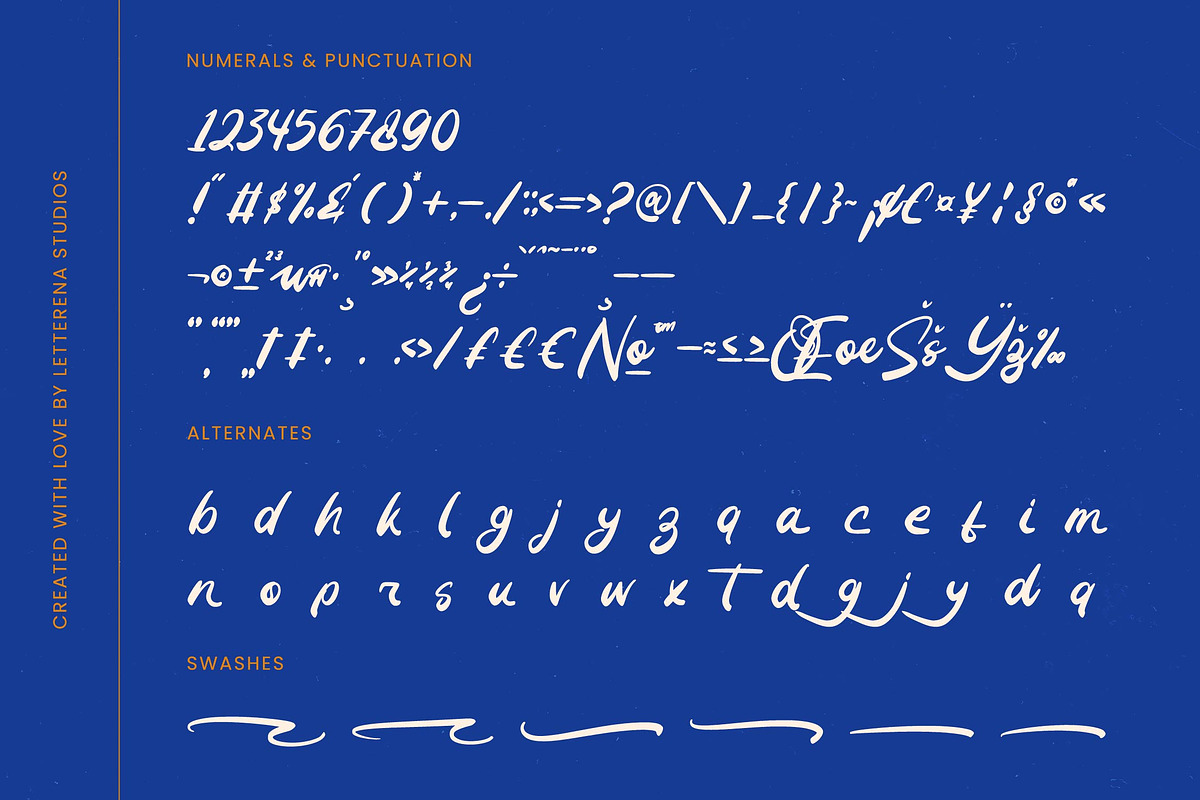 CREATED WITH LOVE BY LETTERENA STUDIOS
NUMERALS & PUNCTUATION
1234567890
!"#$%&'()*+,-./:;<=>?@[\]_{|}~¡¢£¤¥¦§©"«
¬®±²³µ¶·¸¹º»¼½¾¿÷
“”‘’„†‡•…‹›/₣€€№™−≈≤≥ŒœŠšŸž‰
ALTERNATES
b d h k l g j y z q a c e f i m
n o p r s u v w x T d g j y d q
SWASHES